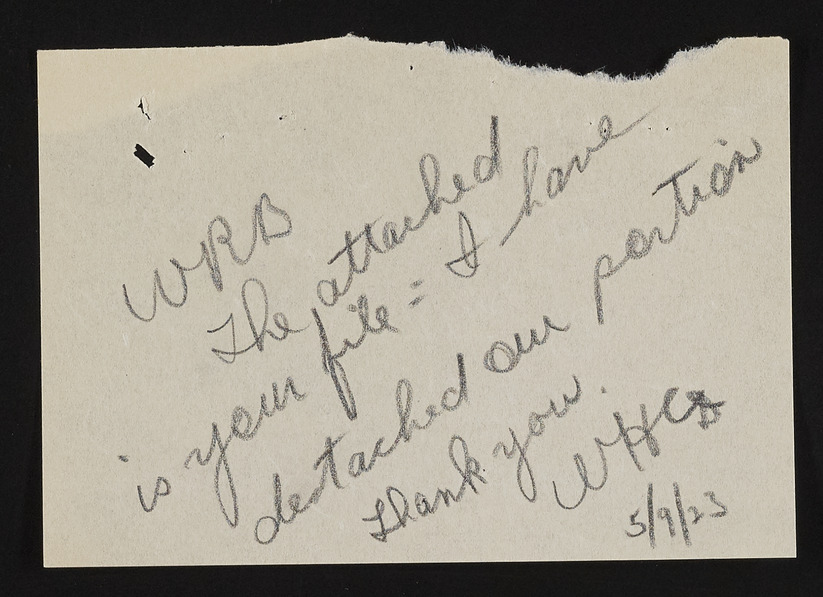 WRB
The attached
is your file = I have
destached our portion
Thank you.
WHCB
5/9/23